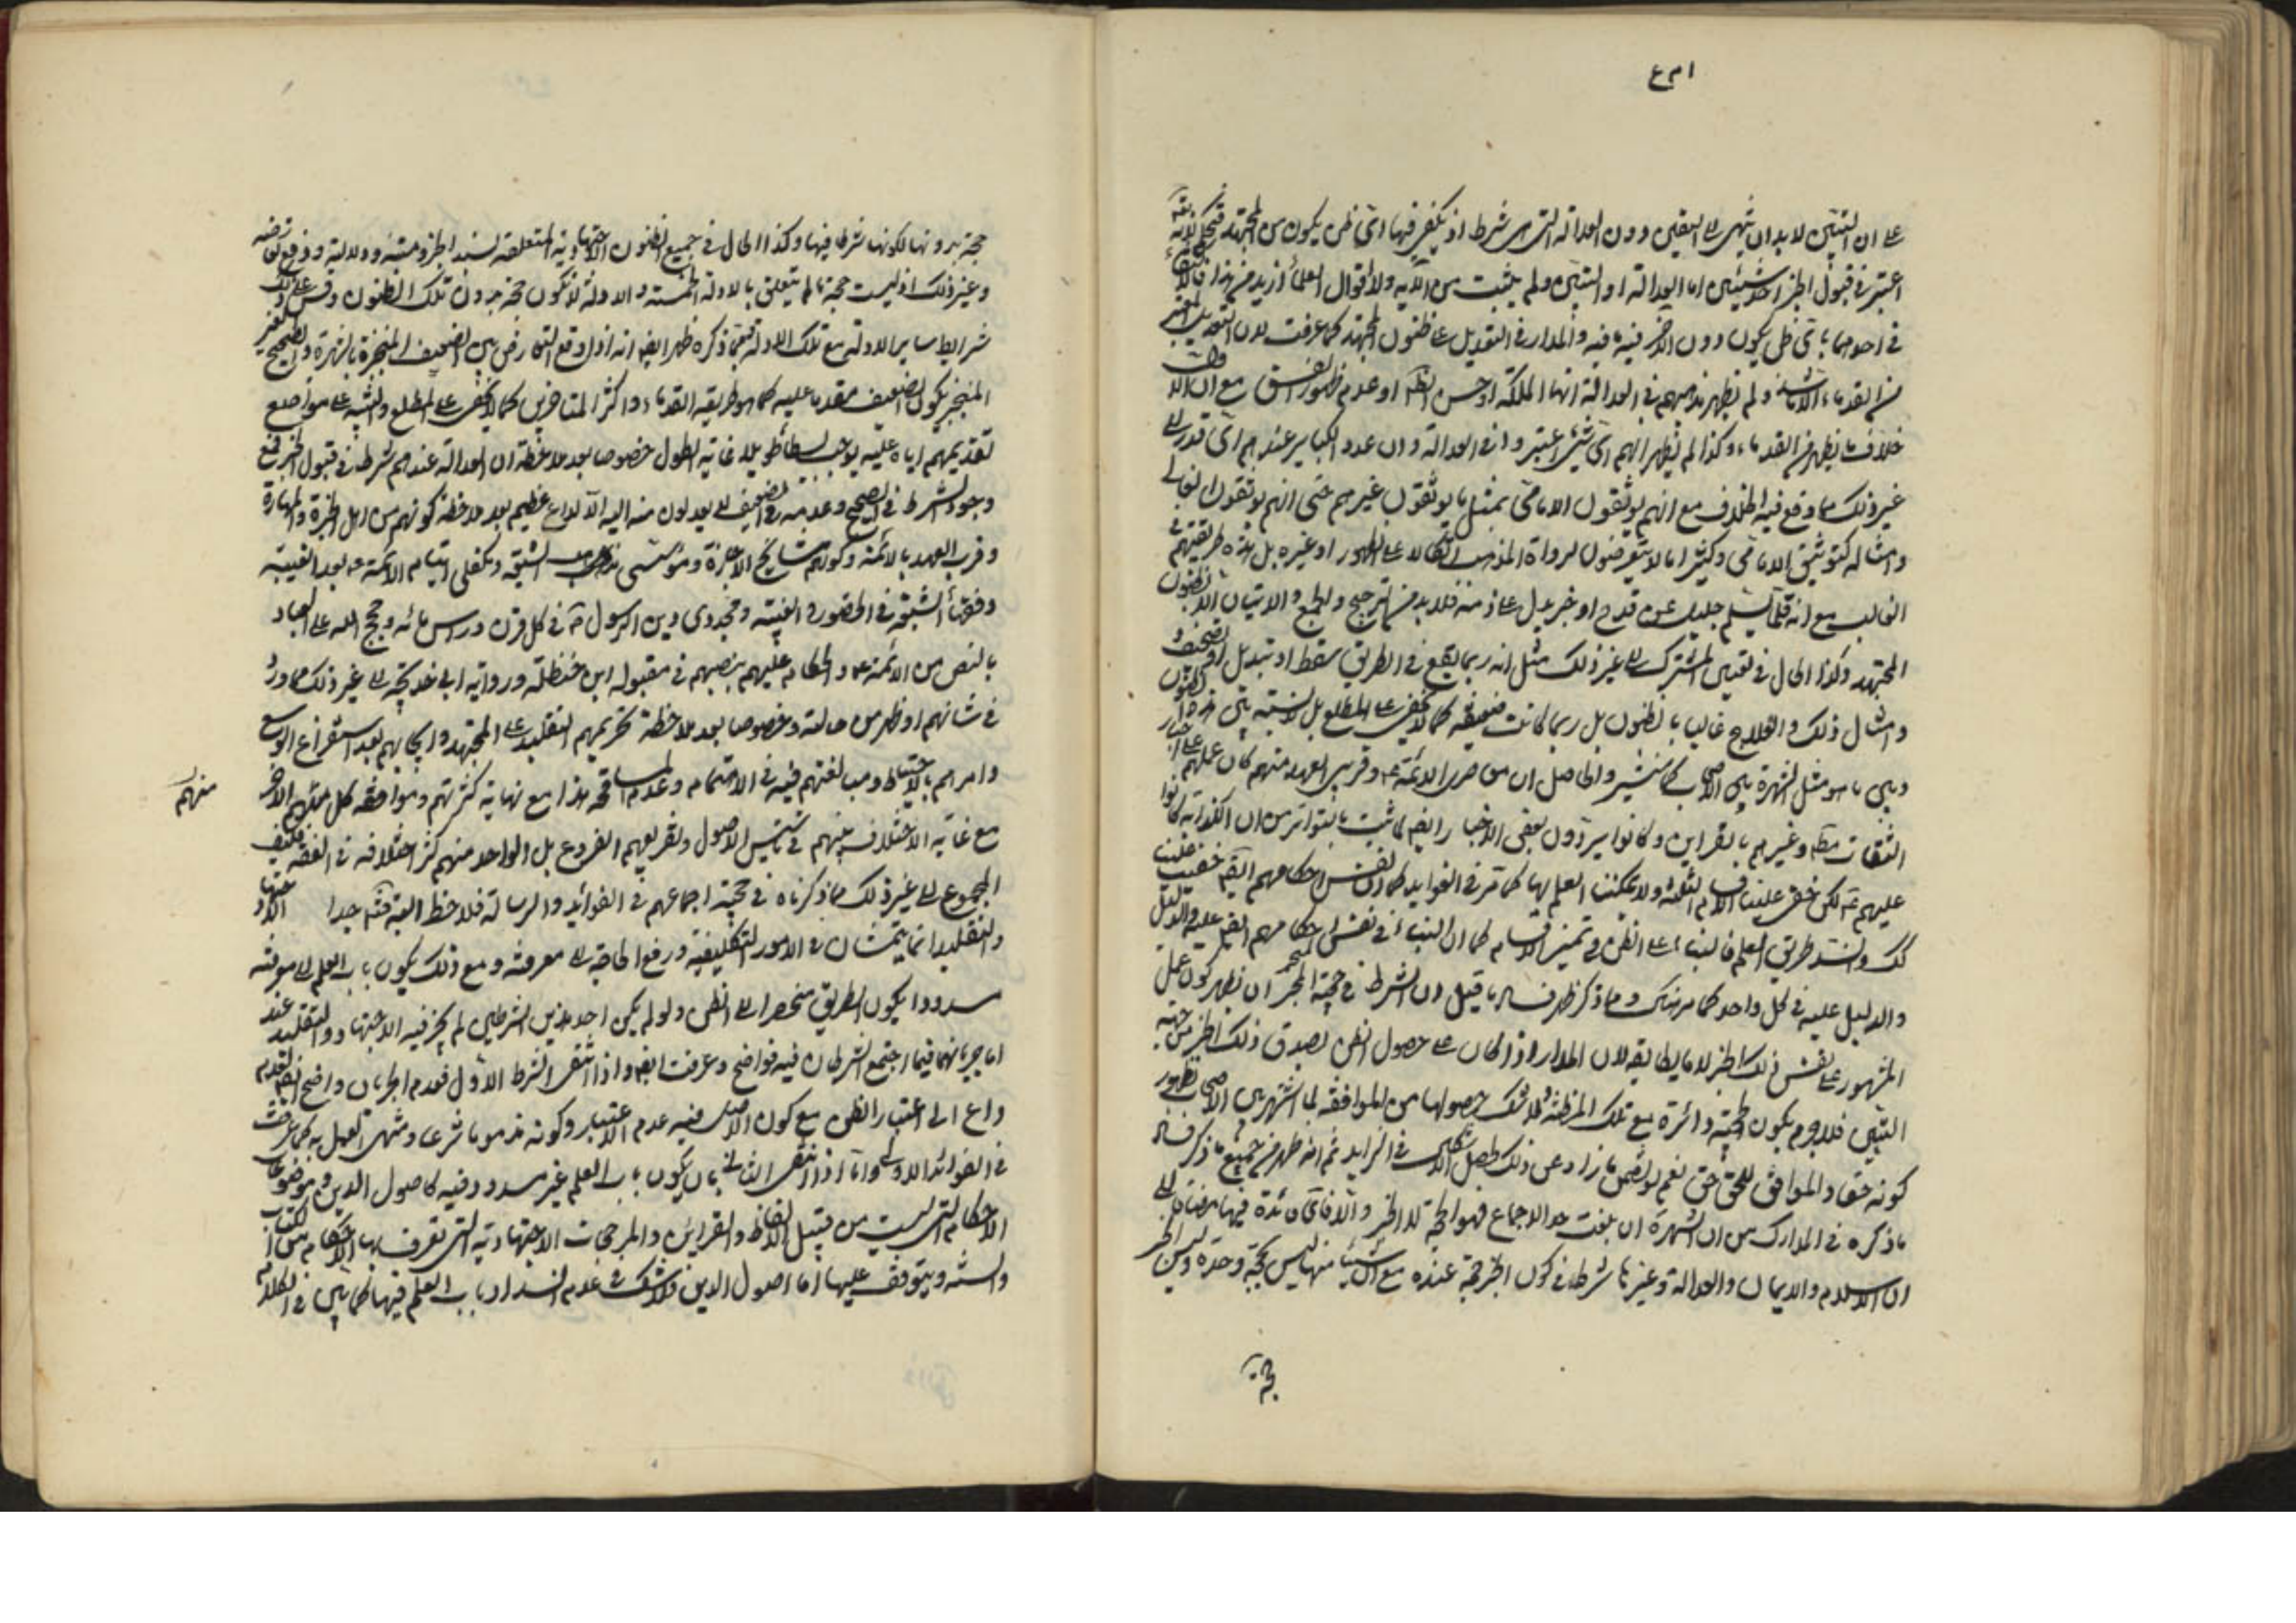 على ان التبين لابد ان ينتهى الى اليقين دون العدالة التى هى شرط اذ يكفى فيها اى ظن يكون من المجتهد
اعتبر فى قبول الخبر احد شيئين اما العدالة او التبين ولم يثبت من الآية ولا اقوال العلماء ازيد من هذا
فى احدهما باى ظن يكون دون الآخر فيه ما فيه والمدار فى التعديل على ظنون المجتهد كما عرفت لان التعديل
من القدماء ولم يظهر مذهبهم فى العدالة انها الملكة او حسن الظاهر او عدم ظهور الفسق مع ان
خلاف ما يظهر من القدماء وكذا لم يظهر انهم اى شىء اعتبروا فى العدالة وان عدد الكباير عندهم اى قدر الى
غير ذلك مما وقع فيه الخلاف مع انهم يوثقون الامامى بمثل ما يوثقون غيرهم حتى انهم يوثقون الغالى
وامثاله كتوثيق الامامى وكثيرا ما لا يتعرضون لرداة المذهب اتكالا على الظهور او غيره بل هذه طريقتهم فى
الغالب مع انه قلما يسلم جليل عن قدح او خبر يدل على ذمه فلا بد من الترجيح والجمع ولا يتاتيان الا بظنون
المجتهد وكذا الحال فى تعيين المشترك الى غير ذلك مثل انه ربما يقع فى الطريق سقط او تبديل او تصحيف و
امثال ذلك والعلاج غالبا بالظنون بل ربما كانت ضعيفة كما لا يخفى على المطلع بل لا نسبة بين هذه الظنون
وبين ما هو مثل الشهرة بين الاصحاب كما سنشير والحاصل ان من عاصر الائمة ع وقريبى العهد منهم كان عملهم على اخبار
الثقات مطلقا وغيرهم بالقراين وكانوا يردون بعض الاخبار ايضا لما ثبت بالتواتر من ان الكذابة كانوا
عليهم ع لكن خفى علينا الاقسام الثلثة ولا يمكننا العلم بها كما مر فى الفوايد كما ان نفس احكامهم ايضا خفيت علينا
كك وانسد طريق العلم فالبناء على الظن فى تميز الاقسام كما ان البناء فى نفس احكامهم ايضا عليه والدليل
والدليل عليه فى كل واحد كما مر هناك ومما ذكر ظهر فساد ما قيل ان الشرط فى حجية الخبر ان تظهر كون عمل
المشهور على نفس ذلك الخبر لا ما يطابقه لان المدار اذا كان على حصول الظن بصدق ذلك الخبر من جهة
التبين فلا جرم يكون الحجية دائرة مع تلك المظنة ولا شك حصولها من الموافقة لما اشتهر بين الاصحاب
كونه حقا والموافق للحق حق نعم لو تضمن ما زاد عن ذلك يحصل الاشكال فى الزايد ثم انه ظهر من جميع ما ذكر فساد
ما ذكره فى المدارك من ان الشهرة ان بلغت حد الاجماع فهو الحجة لا الخبر والا فاى فائدة فيها مضافا الى
ان الاسلام والايمان والعدالة وغيرها شرط فى كون الخبر حجة عنده مع ان شيئا منها ليس بحجة وحده وليس الخبر
حجة بدونها لكونها شرطا فيها وكذا الحال فى جميع الظنون الاجتهادية المتعلقة بسند الخبر ومتنه ودلالته ودفع تعارضه
وغير ذلك اذ ليست حجة ما لم يتعلق بالادلة الخمسة والادلة لا تكون حجة بدون تلك الظنون وقس على ذلك
شرايط ساير الادلة مع تلك الادلة فبما ذكره ظهر ايضا انه اذا وقع التعارض بين الضعيف المنجبر بالشهرة والصحيح الغير
المنجبر يكون الضعيف مقدما عليه كما هو طريقة القدماء واكثر المتاخرين كما لا يخفى على المطلع والتنبيه على مواضع
تقديمهم اياه عليه يوجب بسطا طويلا غاية الطول خصوصا بعد ملاحظة ان العدالة عندهم شرط فى قبول الخبر فمع
وجود الشرط فى الصحيح وعدمه فى الضعيف لا يعدلون منه اليه الا لداع عظيم بعد ملاحظة كونهم من اهل الخبرة والمهارة
وقرب العهد بالائمة وكونهم مشايخ الاجازة ومؤسسى مذهب الشيعة ومكفلى ايتام الائمة ع بعد الغيبة
وفقهاء الشيعة فى الحضور والغيبة ومجددى دين الرسول ص فى كل قرن وراس مائة وحجج الله على العباد
بالنص من الائمة ع والحكام عليهم بنصبهم فى مقبولة ابن حنظلة ورواية ابى خديجة الى غير ذلك مما ورد
فى شانهم او ظهر من حالتهم وخصوصا بعد ملاحظة تحريمهم التقليد على المجتهد وايجابهم بعد استفراغ الوسع
وامرهم بالاحتياط ومبالغتهم فيه فى الاهتمام وعدم المسامحة هذا مع نهاية كثرتهم وموافقة كل منهم الآخر
منهم
مع غاية الاختلاف بينهم فى تاسيس الاصول وتفريعهم الفروع بل الواحد منهم كثر اختلافه فى الفقه فكيف
المجموع الى غير ذلك مما ذكرناه فى حجية اجماعهم فى الفوائد والرسالة فلاحظ البتة جدا الاجتهاد
والتقليد انما يتمشان فى الامور التكليفية ورفع الحاجة الى معرفته ومع ذلك يكون باب العلم الى معرفته
مسدودا يكون الطريق منحصرا الى الظن ولو لم يكن احد هذين الشرطين لم يجز فيه الاجتهاد والتقليد عند
اما جريانهما فيما اجتمع الشرطان فيه فواضح وعرفت ايضا واذا انتفى الشرط الاول فعدم الجريان واضح ايضا لعدم
داع الى اعتبار الظن مع كون الاصل فيه عدم الاعتبار وكونه مذموما شرعا ومنهى العمل به كما عرفت
فى الفوائد الاولى واما اذا انتفى الثانى بان يكون باب العلم غير مسدود فيه كاصول الدين وموضوعات
الاحكام التى ليست من قبيل الالفاظ والقراين والمرجحات الاجتهادية التى تعرف بها الاحكام من الكتاب
والسنة ويتوقف عليها اما اصول الدين فلا شك فى عدم انسداد باب العلم فيها كما بين فى الكلام